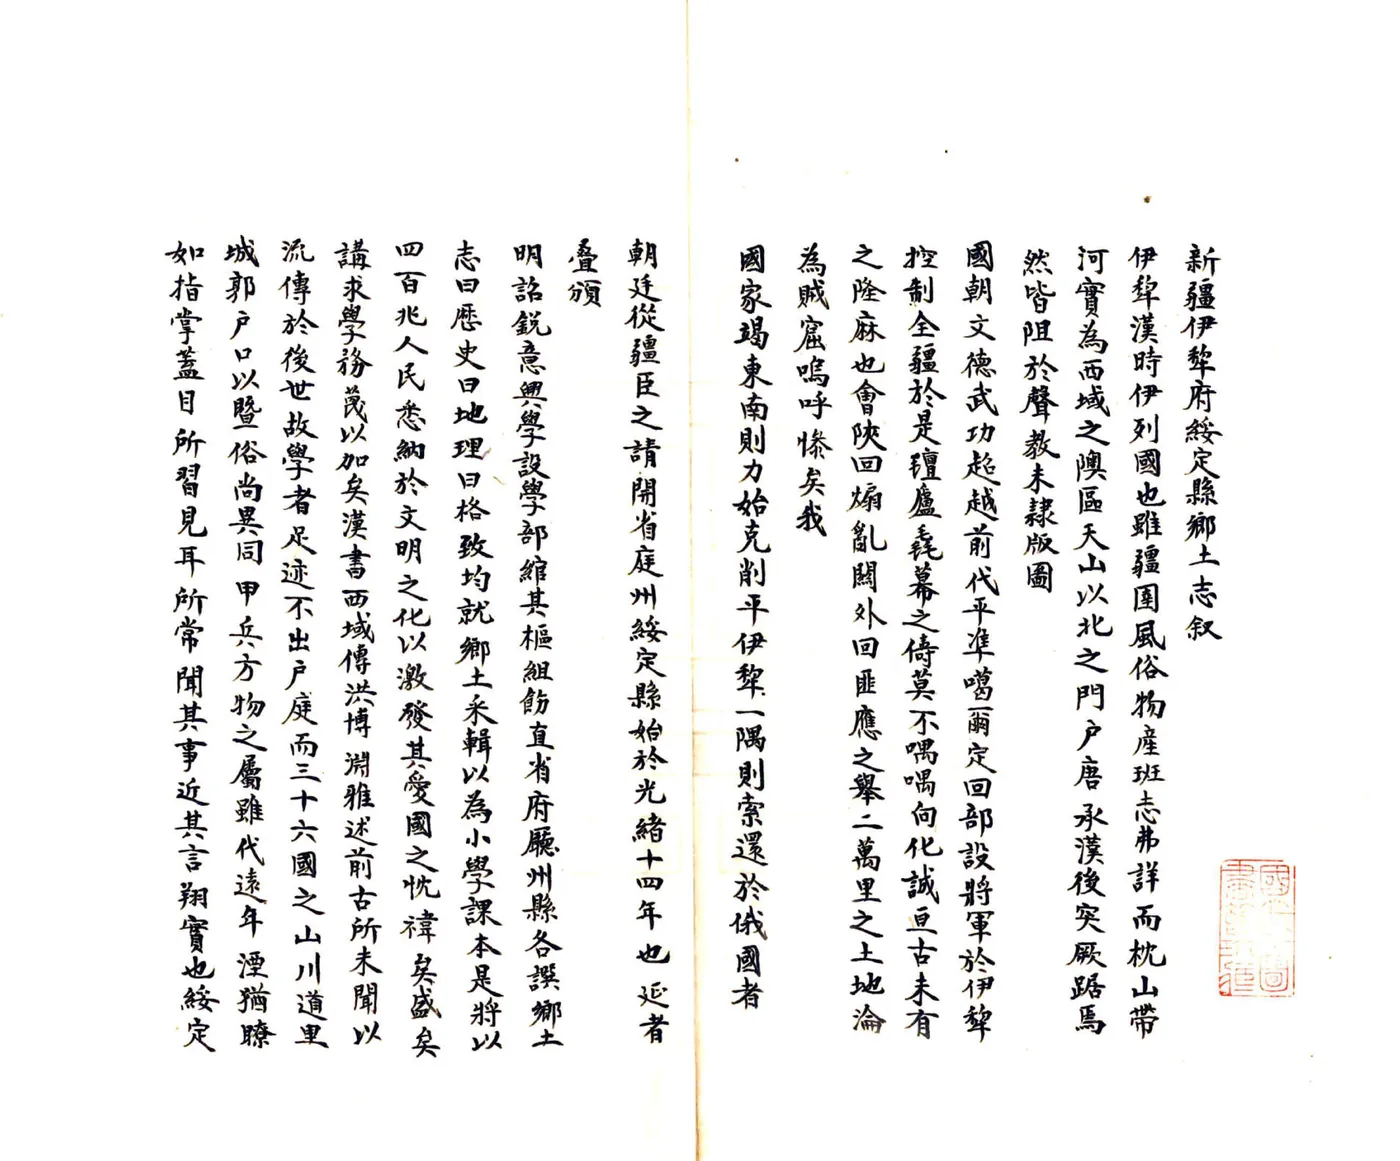 新疆伊犂府綏定縣鄉土志叙
伊犂漢時伊列國也雖疆圉風俗物産班志弗詳而枕山帶
河實為西域之隩區天山以北之門户唐承漢後突厥踞焉
然皆阻於聲教未隸版圖
國朝文德武功超越前代平準噶爾定回部設將軍於伊犂
控制全疆於是氊廬毳幕之儔莫不喁喁向化誠亘古未有
之隆庥也會陝回煽亂關外回匪應之舉二萬里之土地淪
為賊窟嗚呼慘矣我
國家竭東南則力始克削平伊犂一隅則索還於俄國者
朝廷從疆臣之請開省庭州綏定縣始於光緒十四年也延者
疊頒
明詔鋭意興學設學部綰其樞組飭直省府廳州縣各譔鄉土
志曰歷史曰地理曰格致均就鄉土采輯以為小學課本是將以
四百兆人民悉納於文明之化以激發其愛國之忱禕矣盛矣
講求學務蔑以加矣漢書西域傳洪博淵雅述前古所未聞以
流傳於後世故學者足迹不出户庭而三十六國之山川道里
城郭户口以暨俗尚異同甲兵方物之屬雖代遠年湮猶瞭
如指掌蓋目所習見耳所常聞其事近其言翔實也綏定